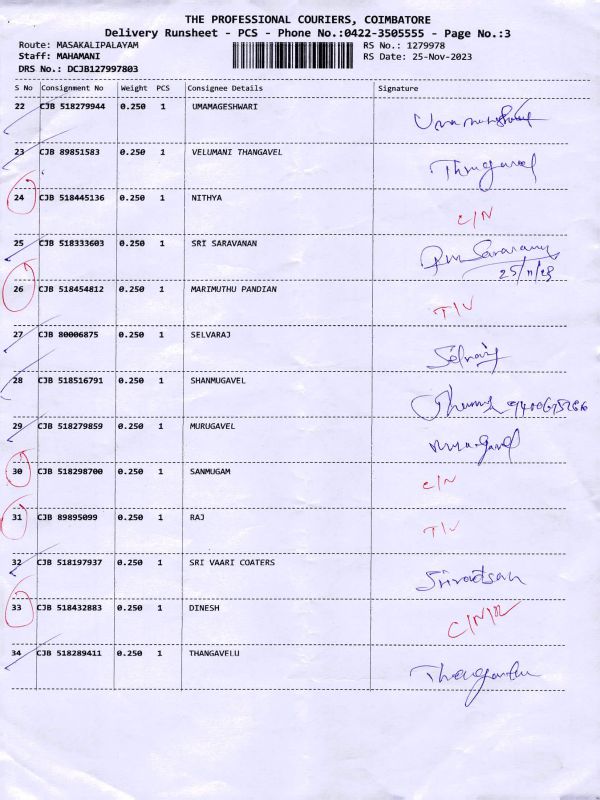 THE PROFESSIONAL COURIERS, COIMBATORE
Delivery Runsheet - PCS - Phone No.:0422-3505555 - Page No.:3
Route: MASAKALIPALAYAM RS No.: 1279978
Staff: MAHAMANI RS Date: 25-Nov-2023
DRS No.: DCJB127997803
S No Consignment No Weight PCS Consignee Details Signature
22 CJB 518279944 0.250 1 UMAMAGESHWARI
23 CJB 89851583 0.250 1 VELUMANI THANGAVEL Thangavel
24 CJB 518445136 0.250 1 NITHYA C/N
25 CJB 518333603 0.250 1 SRI SARAVANAN
25/11/23
26 CJB 518454812 0.250 1 MARIMUTHU PANDIAN T/V
27 CJB 80006875 0.250 1 SELVARAJ Selvaraj
28 CJB 518516791 0.250 1 SHANMUGAVEL
29 CJB 518279859 0.250 1 MURUGAVEL Murugavel
30 CJB 518298700 0.250 1 SANMUGAM C/N
31 CJB 89895099 0.250 1 RAJ T/V
32 CJB 518197937 0.250 1 SRI VAARI COATERS
33 CJB 518432883 0.250 1 DINESH
34 CJB 518289411 0.250 1 THANGAVELU Thangavelu